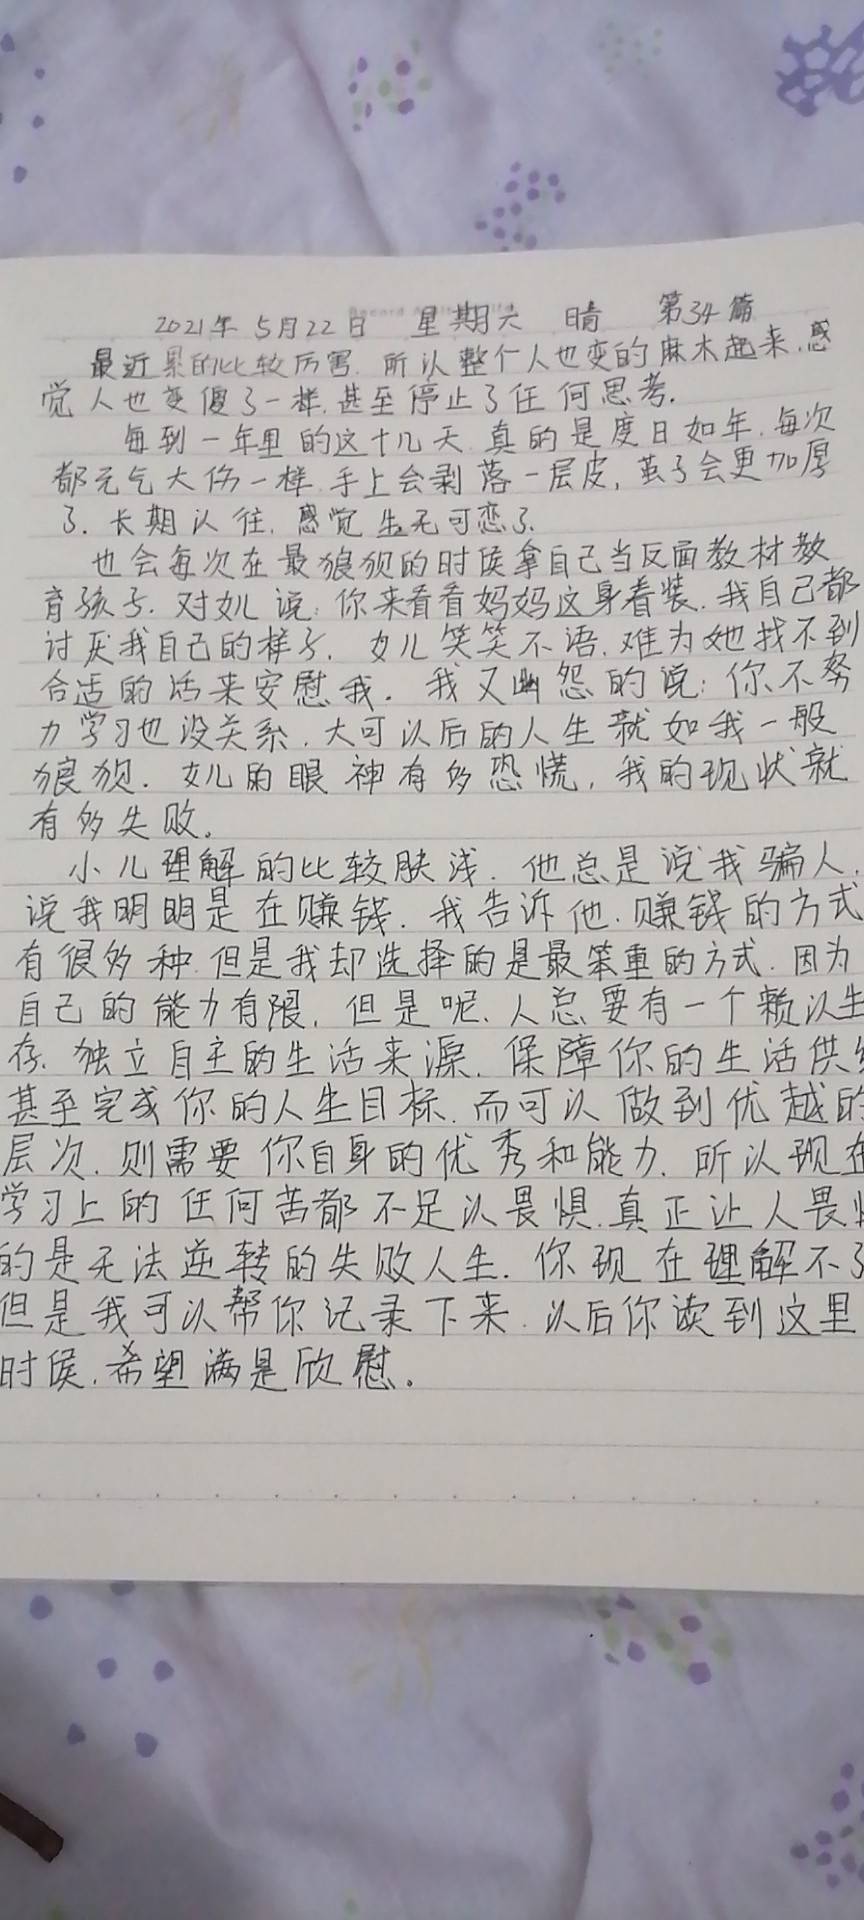 2021年5月22日 星期六 晴 第34篇
最近累的比较厉害.所以整个人也变的麻木起来.感
觉人也变傻了一样.甚至停止了任何思考.
每到一年里的这十几天.真的是度日如年.每次
都元气大伤一样.手上会剥落一层皮,茧子会更加厚
了.长期以往.感觉生无可恋了.
也会每次在最狼狈的时侯拿自己当反面教材教
育孩子.对女儿说:你来看看妈妈这身着装.我自己都
讨厌我自己的样子.女儿笑笑不语.难为她找不到
合适的话来安慰我.我又幽怨的说:你不努
力学习也没关系.大可以后的人生就如我一般
狼狈.女儿的眼神有多恐慌,我的现状就
有多失败。
小儿理解的比较肤浅.他总是说我骗人.
说我明明是在赚钱.我告诉他.赚钱的方式
有很多种.但是我却选择的是最笨重的方式.因为
自己的能力有限.但是呢.人总要有一个赖以生
存.独立自主的生活来源.保障你的生活供给
甚至完成你的人生目标.而可以做到优越的
层次.则需要你自身的优秀和能力.所以现在
学习上的任何苦都不足以畏惧.真正让人畏惧
的是无法逆转的失败人生.你现在理解不了
但是我可以帮你记录下来.以后你读到这里
时侯.希望满是欣慰.